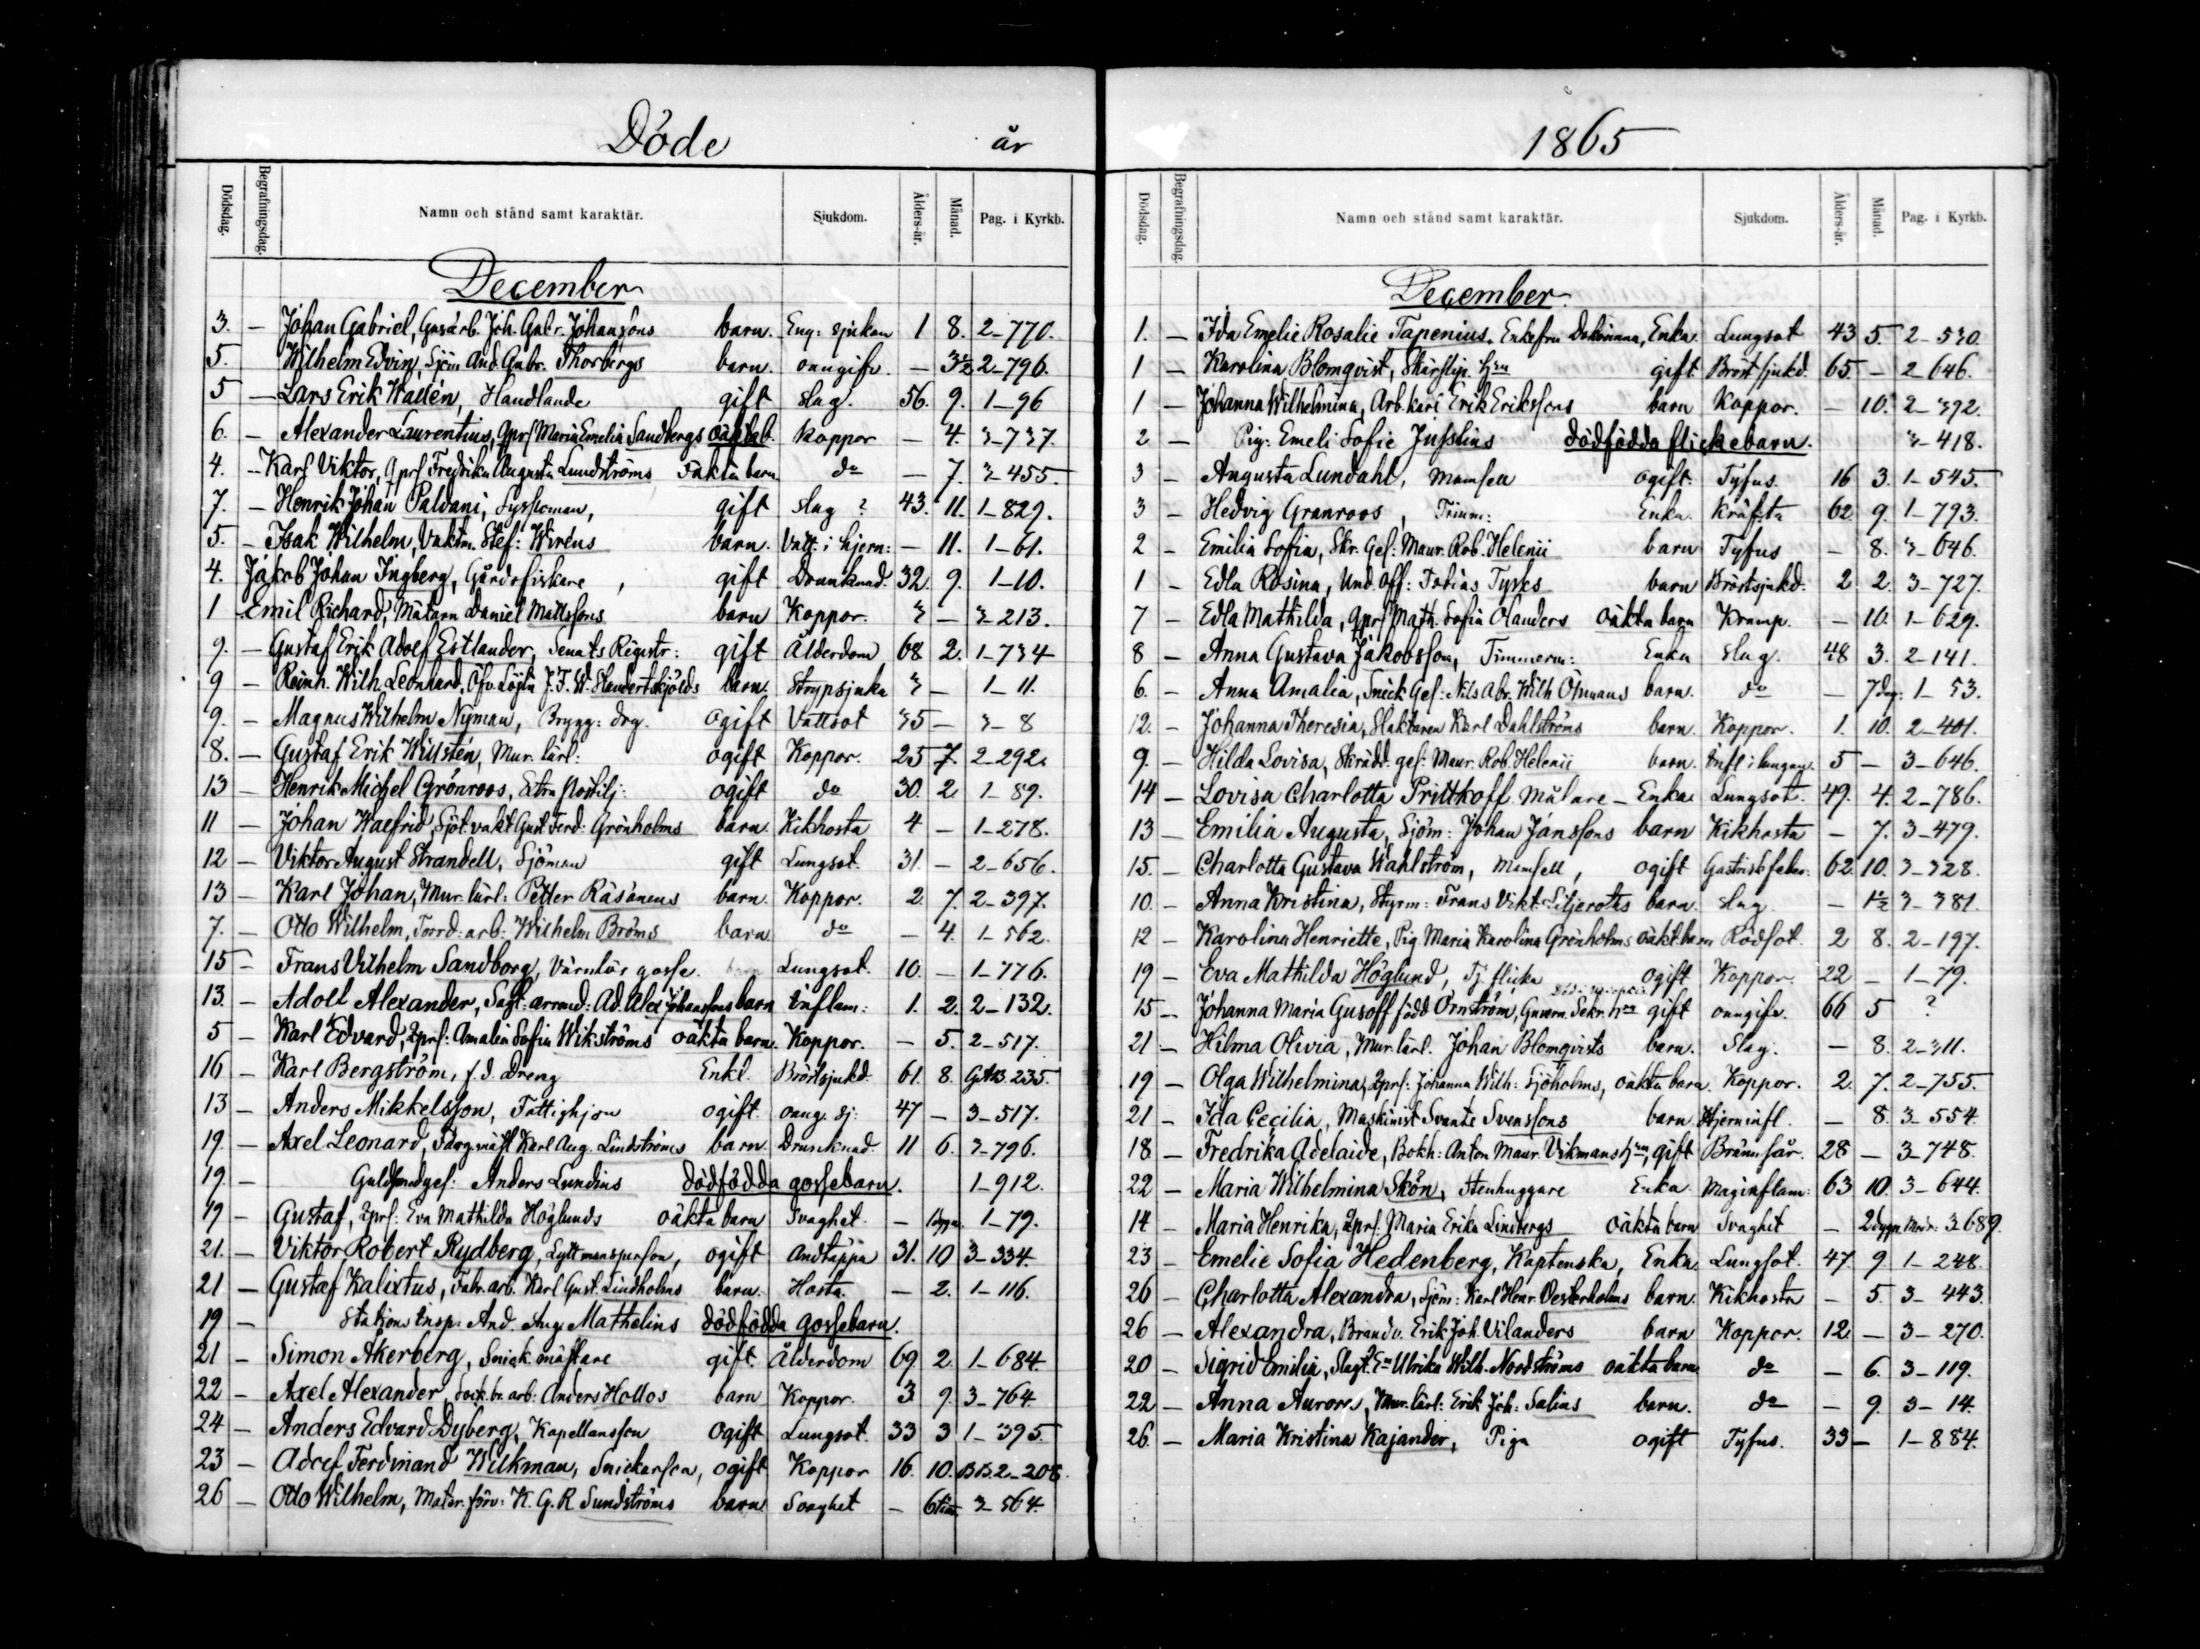 Döde år
Dödsdag. Begrafningsdag. Namn och stånd samt karaktär. Sjukdom. Ålders-år. Månad. Pag. i Kyrkb.
December
3. — Johan Gabriel, Gasarb. Joh. Gabr. Johansons barn. Eng: sjukan 1 8. 2-770.
5. Wilhelm Edvin, Sjöm. And. Gabr. Thorbergs barn. onngifv. — 3½ 2-796.
5 — Lars Erik Wallén, Handlande gift slag. 56. 9. 1-96
6. — Alexander Laurentius, Qprs Maria Emelia Sandbergs oäkta b. Koppor — 4. 3-737.
4. — Karl Viktor, Qprs Fredrika Augusta Lundströms oäkta barn do — 7. 3-455.
7. — Henrik Johan Paldani, Sysloman, gift slag ? 43. 11. 1-829.
5. — Isak Wilhelm, Vaktm. Stef: Wirens barn. Vatt: i hjern: — 11. 1-61.
4. Jakob Johan Ingberg, Gårdsfiskare, gift Drunknad. 32. 9. 1-10.
1 Emil Richard, Mätarn Daniel Mattssons barn Koppor. 3 — 3-213.
9. — Gustaf Erik Adolf Estlander, Senats Registr: gift Ålderdom 68 2. 1-734
9 — Reinh. Wilh. Leonhard, Öfv. Löjtn J. F. W. Standertskjölds barn. Strypsjuka 3 — 1-11.
9. — Magnus Wilhelm Nyman, Brygg: drg. ogift Vattsot 35 — 3-8
8. — Gustaf Erik Willstén, Mur. lärl: ogift Koppor. 25 7. 2-292.
13 — Henrik Michel Grönroos, Extra Postilj: ogift do 30. 2. 1-89.
11 — Johan Walfrid, Sjöt. vakt Gust. Ferd: Grönholms barn. Kikhosta 4 — 1-278.
12 — Viktor August Strandell, Sjöman gift Lungsot. 31. — 2-656.
13 — Karl Johan, Mur. lärl: Petter Räsänens barn. Koppor. 2. 7. 2-397.
7. — Otto Wilhelm, Tord: arb: Wilhelm Bröms barn do — 4. 1-562.
15 — Frans Vilhelm Sandborg, Värnlös gosse. Lungsot. 10. — 1-776.
13. — Adolf Alexander, arrend: Ad. Alex Johanssons barn Inflam: 1. 2. 2-132.
5 — Karl Edvard, Qprs: Amalia Sofia Wikströms oäkta barn. Koppor. — 5. 2-517.
16 — Karl Bergström, f.d. Dreng Enkl. Bröstsjukd. 61. 8. 235.
13 — Anders Mikkelsson, Fattighjon ogift. oang. sj: 47 — 3-517.
19. — Axel Leonard, Färg.mäst Karl Aug. Lindströms barn. Drunknad. 11 6. 3-796.
19. — Guldsmedgef: Anders Lundius dödfödda gossebarn. 1-912.
19 — Gustaf, Qprs: Eva Mathilda Höglunds oäkta barn Svaghet. — 1 dygn. 1-79.
21. — Viktor Robert Rydberg, Lyttmansperson, ogift Andtäppa 31. 10 3-334.
21 — Gustaf Kalixtus, Fabr. arb. Karl Gust. Lindholms barn. Hosta. — 2. 1-116.
19 — Stations Insp: And. Aug. Mathelins dödfödda gossebarn.
21 — Simon Åkerberg, Snick. mästare gift. Ålderdom 69. 2. 1-684.
22 — Axel Alexander, Sock. br. arb: Anders Hollos barn Koppor. 3 9. 3-764
24 — Anders Edvard Dyberg, Kapellansson ogift Lungsot. 33 3 1-395.
23 — Adolf Ferdinand Wilkman, Snickarson, ogift Koppor 16. 10. B.B. 2-208.
26 — Otto Wilhelm, Mater. förv: K. G. R Sundströms barn. Svaghet — 6 tim. 3-564.
1865
Dödsdag. Begrafningsdag. Namn och stånd samt karaktär. Sjukdom. Ålders-år. Månad. Pag. i Kyrkb.
December.
1. — Ida Emelie Rosalie Tapenius, Enkefru Doktorinna, Enka. Lungsot 43 5. 2-530.
1 — Karolina Blomqvist, Skärslip. hru gift. Bröst sjukd. 65. — 2-646.
1 — Johanna Wilhelmina, Arb. karl Erik Erikssons barn Koppor. — 10. 2-392.
2 — Pig: Emeli Sofie Jusslius dödfödda flickebarn. 3-418.
3 — Augusta Lundahl, Mamsell ogift. Tyfus. 16 3. 1-545.
3 — Hedvig Granroos, Timm: Enka. Kräfta 62. 9. 1-793.
2 — Emilia Sofia, Skr. Ges: Maur. Rob. Helenii barn Tyfus — 8. 3-646.
1 — Edla Rosina, Und. Off: Tobias Tysks barn Bröstsjukd. 2 2. 3-727.
7 — Edla Mathilda, Qprs Math. Sofia Olanders oäkta barn Kramp. — 10. 1-629.
8 — Anna Gustava Jakobsson, Timmerm: Enka slag. 48 3. 2-141.
6. — Anna Amalia, Snick. Ges: Nils Abr. Wilh Öhmans barn. do — 7 dag: 1-53.
12. — Johanna Theresia, Slaktaren Karl Dahlströms barn. Koppor. 1. 10. 2-401.
9. — Hilda Lovisa, Skrädd. ges: Maur. Rob. Helenii barn. Infl i lungan. 5 — 3-646.
14 — Lovisa Charlotta Prittkoff Målare- Enka Lungsot. 49. 4. 2-786.
13 — Emilia Augusta, Sjöm: Johan Janssons barn Kikhosta — 7. 3-479.
15. — Charlotta Gustava Wahlström, Mamsell, ogift Gastrisk feber. 62. 10. 3-328.
10. — Anna Kristina, Styrm: Frans Vikt. Liljeroths barn. slag. — 1½ 3-381.
12 — Karolina Henriette, Pig. Maria Karolina Grönholms oäkt. barn Rödsot. 2 8. 2-197.
19 — Eva Mathilda Höglund, Tj. flicka ogift Koppor. 22 — 1-79.
15 — Johanna Maria Gusoff född Ornström, Guvern. Sekr. hru gift onngifv. 66 5 ?
21 — Hilma Olivia, Mur. lärl. Johan Blomqvists barn. Slag. — 8. 2-311.
19 — Olga Wilhelmina, Qprs: Johanna Wilh: Sjöholms, oäkta barn Koppor. 2. 7. 2-755.
21 — Ida Cecilia, Maskinist Svante Svenssons barn Hjerninfl. — 8. 3-554.
18 — Fredrika Adelaide, Bokh: Anton Maur. Vikmans hru, gift Brännsår. 28 — 3-748.
22 — Maria Wilhelmina Skön, Stenhuggare Enka. Maginflam: 63 10. 3-644.
14 — Maria Henrika, Qprs. Maria Erika Lindbergs oäkta barn Svaghet — 2 dygn. Modr: 3.689.
23 — Emelie Sofia Hedenberg, Kaptenska, Enka Lungsot. 47. 9. 1-248.
26 — Charlotta Alexandra, Sjöm: Karl Henr. Vesterholms barn. Kikhosta — 5. 3-443.
26 — Alexandra, Brandv. Erik Joh. Vilanders barn Koppor. 12 — 3-270.
20 — Sigrid Emilia, Slagt. En Ulrika Wilh. Nordströms oäkta barn do — 6. 3-119.
22 — Anna Aurora, Mur. lärl: Erik Joh: Salins barn. do — 9. 3-14.
26. — Maria Kristina Kajander, Piga ogift Tyfus. 33 — 1-884.